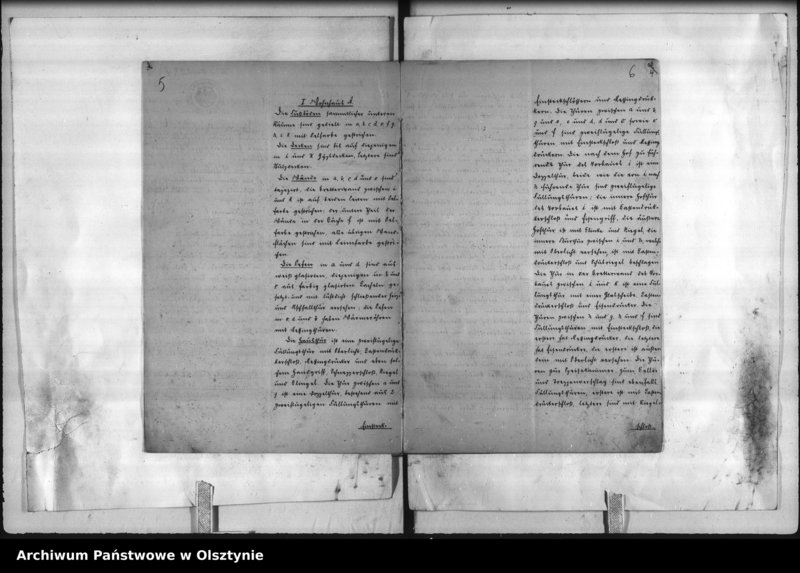 5
I Wohnhaus A
Die Fußböden sämmtlicher unteren
Räume sind gedielt in a, b, c, d, e, f, g,
h, i, k mit Oelfarbe gestrichen.
Die Decken sind bis auf diejenigen
in i und k Gypsdecken, letztere sind
Holzdecken.
Die Wände in a, b, c, d und e sind
tapeziert, die Bretterwand zwischen i
und k ist auf beiden Seiten mit Oel-
farbe gestrichen, der untere Theil der
Wände in der Küche f ist mit Oel-
farbe gestrichen, alle übrigen Wand-
flächen sind mit Leimfarbe gestri-
chen.
Die Oefen in a und d sind aus
weiß glasirten, diejenigen in b und
c aus farbig glasirten Kacheln ge-
setzt und mit luftdicht schließender Heiz-
und Aschfallthür versehen; die Oefen
in c, d und b haben Wärmeröhren
mit Messingthüren.
Die Hausthür ist eine zweiflügelige
Füllungsthür mit Oberlicht, Kastendrük-
kerschloß, Messingdrücker und eben sol-
chem Handgriff, Schnepperschloß, Riegel
und Klingel. Die Thür zwischen a und
g ist eine Doppelthür, bestehend aus 2
zweiflügeligen Füllungsthüren mit
Einsteck-
6
Einsteckschlössern und Messingdrük-
kern. Die Thüren zwischen a und b
und d, d und e sowie e
und f sind zweiflügelige Füllungs-
thüren mit Einsteckschloß und Messing-
drückern. Die nach dem Hof zu füh-
rende Thür des Vorbaues i ist eine
Doppelthür, beide wie die von i nach
k führende Thür sind zweiflügelige
Füllungsthüren; die innere Hofthür
des Vorbaues i ist mit Kastendrük-
kerschloß und Eisengriff, die äußere
Hofthür ist mit Klinke und Riegel, die
innere Flurthür zwischen i und k, welche
mit Oberlicht versehen, ist mit Kasten-
drückerschloß und Schubriegel beschlagen.
Die Thür in der Bretterwand des Vor-
baues zwischen i und k ist eine Fül-
lungsthür mit einer Glasscheibe, Kasten-
drückerschloß und Eisendrücker. Die
Thüren zwischen k und g, k und f sind
Füllungsthüren mit Einsteckschloß, die
erstere hat Messingdrücker, die letztere
hat Eisendrücker, die erstere ist außer-
dem mit Oberlicht versehen. Die Thü-
ren zur Speisekammer, zum Keller
und Treppenverschlag sind ebenfalls
Füllungsthüren, erstere ist mit Kasten-
drückerschloß, letztere sind mit Riegel-
schloß
Archiwum Państwowe w Olsztynie